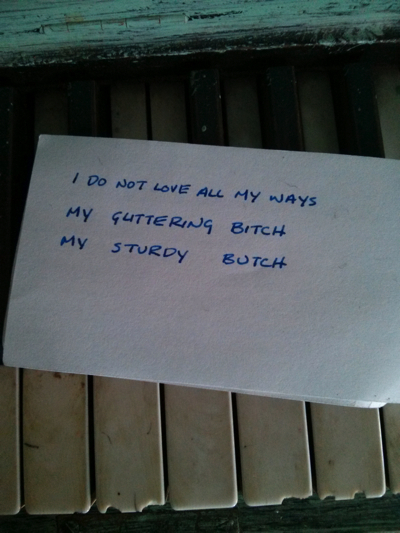 I DO NOT LOVE ALL MY WAYS
MY GLITTERING BITCH
MY STURDY BUTCH